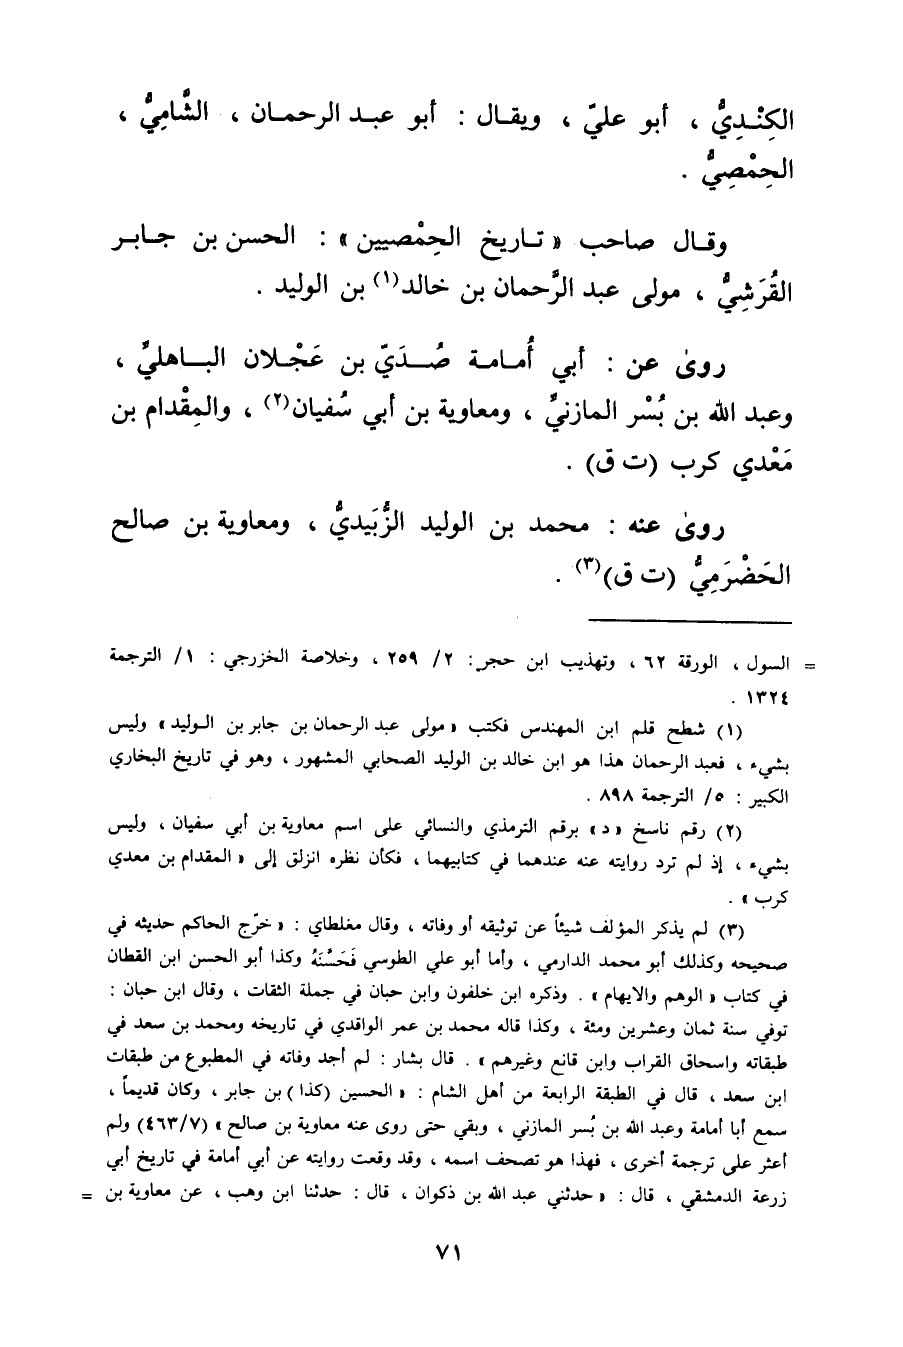 الكِنْـدِيُّ ، أبو عليّ ، ويقـال : أبو عبـد الرحمـان ، الشَّامِيُّ ،
الحِمْصِيُّ .
وقـال صاحب « تـاريخ الحِمْصيين » : الحسن بن جـابـر
القُرَشِيُّ ، مولى عبد الرَّحمان بن خالد(١) بن الوليد .
روىٰ عن : أبي أُمـامـة صُـدَيّ بن عَجْـلان البـاهليِّ ،
وعبد الله بن بُسْر المازنيِّ ، ومعاوية بن أبي سُفيان(٢) ، والمِقْدام بن
مَعْدي كرب (ت ق) .
روىٰ عنه : محمد بن الوليد الزُّبَيديُّ ، ومعاوية بن صالح
الحَضْرَمِيُّ (ت ق)(٣) .
= السول ، الورقة ٦٢ ، وتهذيب ابن حجر: ٢/ ٢٥٩ ، وخلاصة الخزرجي : ١/ الترجمة
١٣٢٤ .
(١) شطح قلم ابن المهندس فكتب « مولى عبد الرحمان بن جابر بن الوليد » وليس
بشيء ، فعبد الرحمان هذا هو ابن خالد بن الوليد الصحابي المشهور ، وهو في تاريخ البخاري
الكبير : ٥/ الترجمة ٨٩٨ .
(٢) رقم ناسخ « د » برقم الترمذي والنسائي على اسم معاوية بن أبي سفيان ، وليس
بشيء ، إذ لم ترد روايته عنه عندهما في كتابيهما ، فكأن نظره انزلق إلى « المقدام بن معدي
كرب » .
(٣) لم يذكر المؤلف شيئاً عن توثيقه أو وفاته ، وقال مغلطاي : « خرّج الحاكم حديثه في
صحيحه وكذلك أبو محمد الدارمي ، وأما أبو علي الطوسي فَحَسَّنَهُ وكذا أبو الحسن ابن القطان
في كتاب « الوهم والايهام » . وذكره ابن خلفون وابن حبان في جملة الثقات ، وقال ابن حبان :
توفي سنة ثمان وعشرين ومئة ، وكذا قاله محمد بن عمر الواقدي في تاريخه ومحمد بن سعد في
طبقاته واسحاق القراب وابن قانع وغيرهم » . قال بشار : لم أجد وفاته في المطبوع من طبقات
ابن سعد ، قال في الطبقة الرابعة من أهل الشام : « الحسين (كذا) بن جابر ، وكان قديماً ،
سمع أبا أمامة وعبد الله بن بُسر المازني ، وبقي حتى روى عنه معاوية بن صالح » (٤٦٣/٧) ولم
أعثر على ترجمة أخرى ، فهذا هو تصحف اسمه ، وقد وقعت روايته عن أبي أمامة في تاريخ أبي
زرعة الدمشقي ، قال : « حدثني عبد الله بن ذكوان ، قال : حدثنا ابن وهب ، عن معاوية بن =
٧١